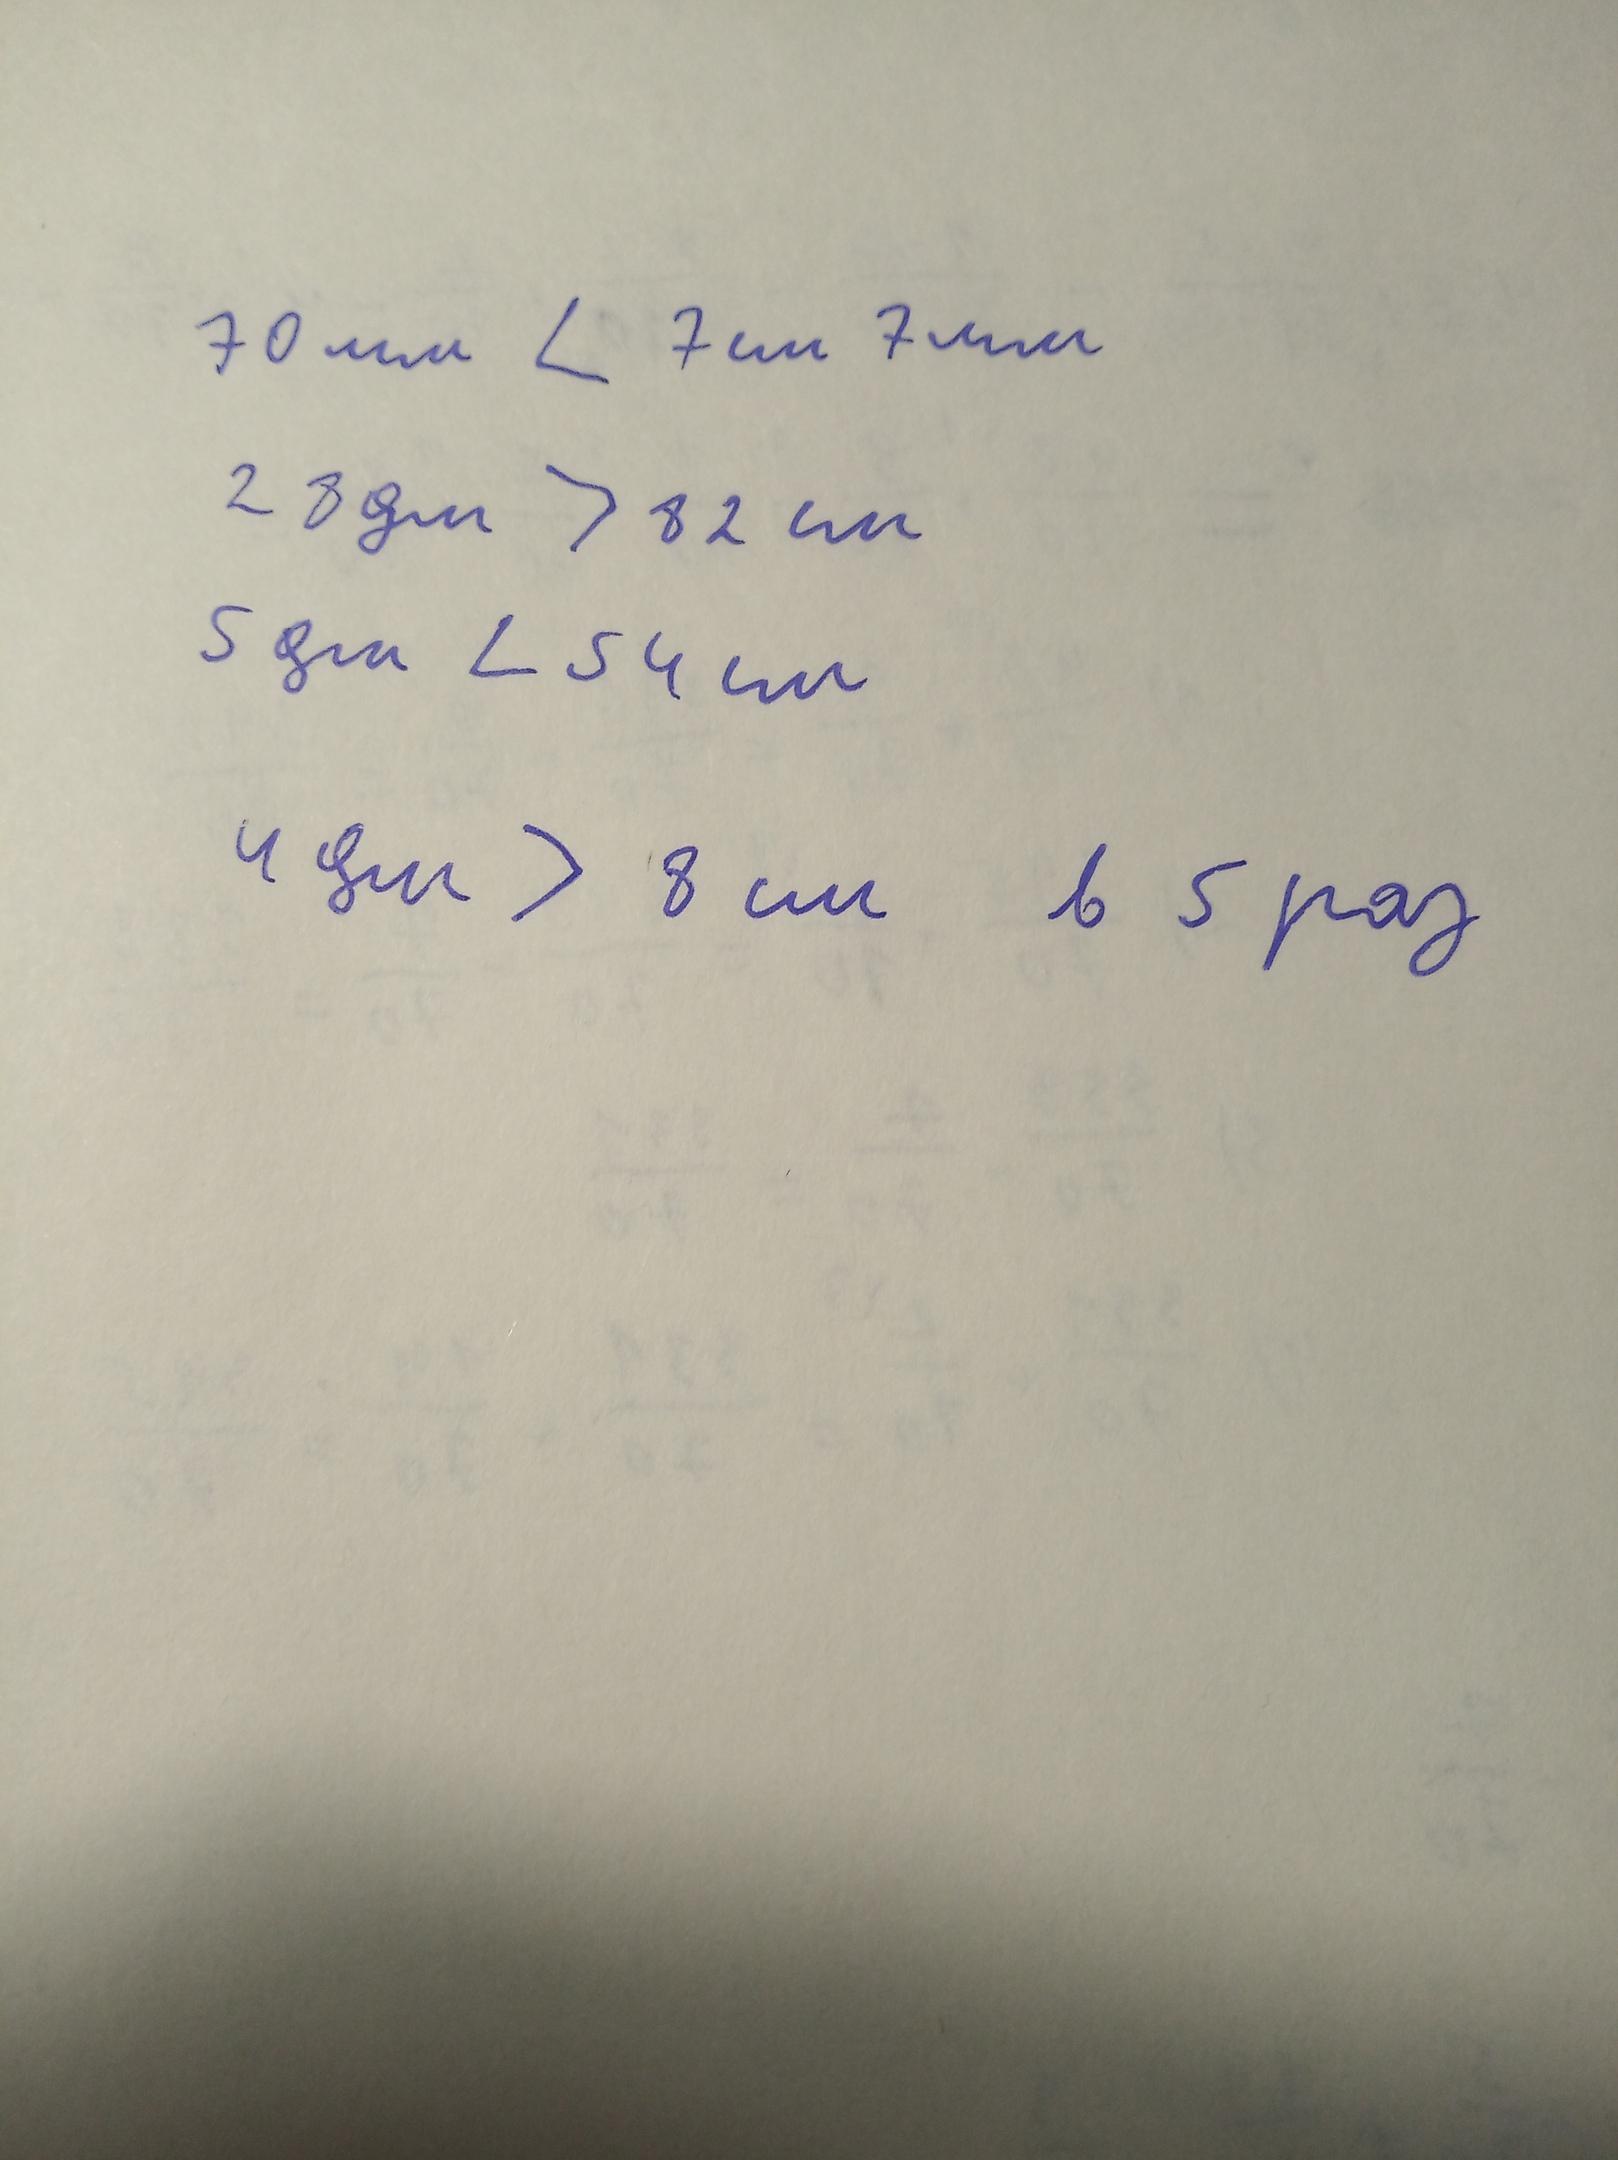 70 мм < 7 см 7 мм
28 дм > 82 см
5 дм < 54 см
4 дм > 8 см в 5 раз